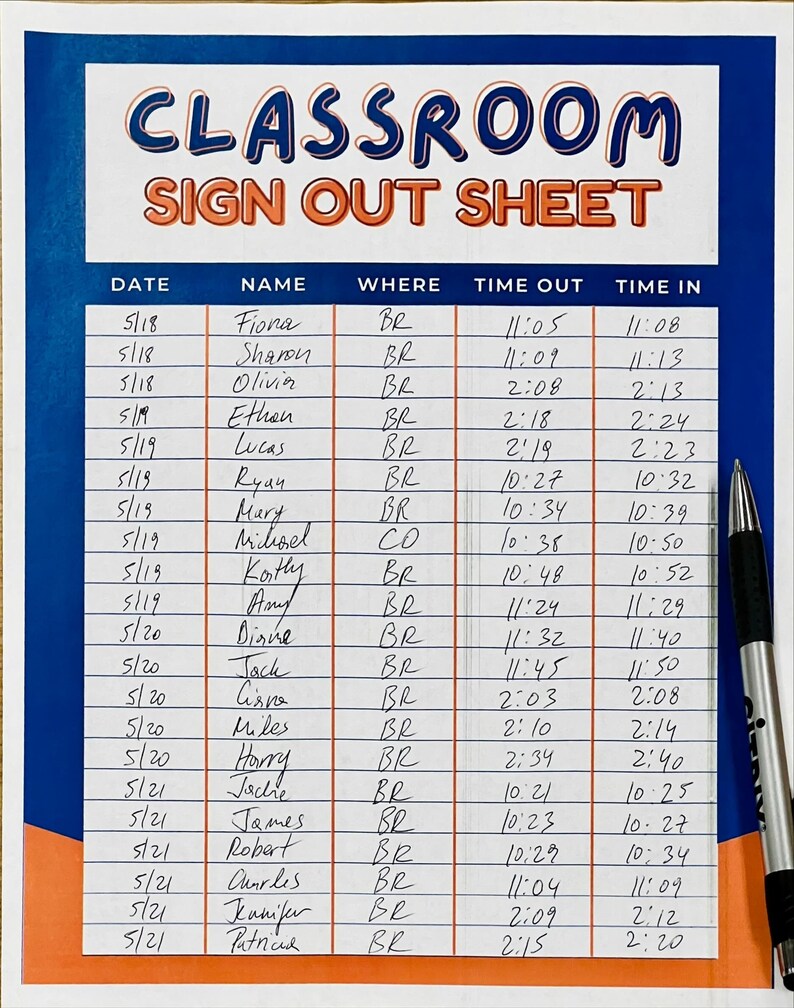 CLASSROOM
SIGN OUT SHEET
DATE NAME WHERE TIME OUT TIME IN
5/18 Fiona BR 11:05 11:08
5/18 Sharon BR 11:09 11:13
5/18 Olivia BR 2:08 2:13
5/19 Ethan BR 2:18 2:24
5/19 Lucas BR 2:19 2:23
5/19 Ryan BR 10:27 10:32
5/19 Mary BR 10:34 10:39
5/19 Michael CO 10:38 10:50
5/19 Kathy BR 10:48 10:52
5/19 Amy BR 11:24 11:29
5/20 Diana BR 11:32 11:40
5/20 Jack BR 11:45 11:50
5/20 BR 2:03 2:08
5/20 Miles BR 2:10 2:14
5/20 Harry BR 2:34 2:40
5/21 Jackie BR 10:21 10:25
5/21 James BR 10:23 10:27
5/21 Robert BR 10:29 10:34
5/21 Charles BR 11:04 11:09
5/21 Jennifer BR 2:09 2:12
5/21 Patricia BR 2:15 2:20